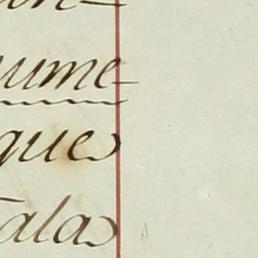 ume
que
ala